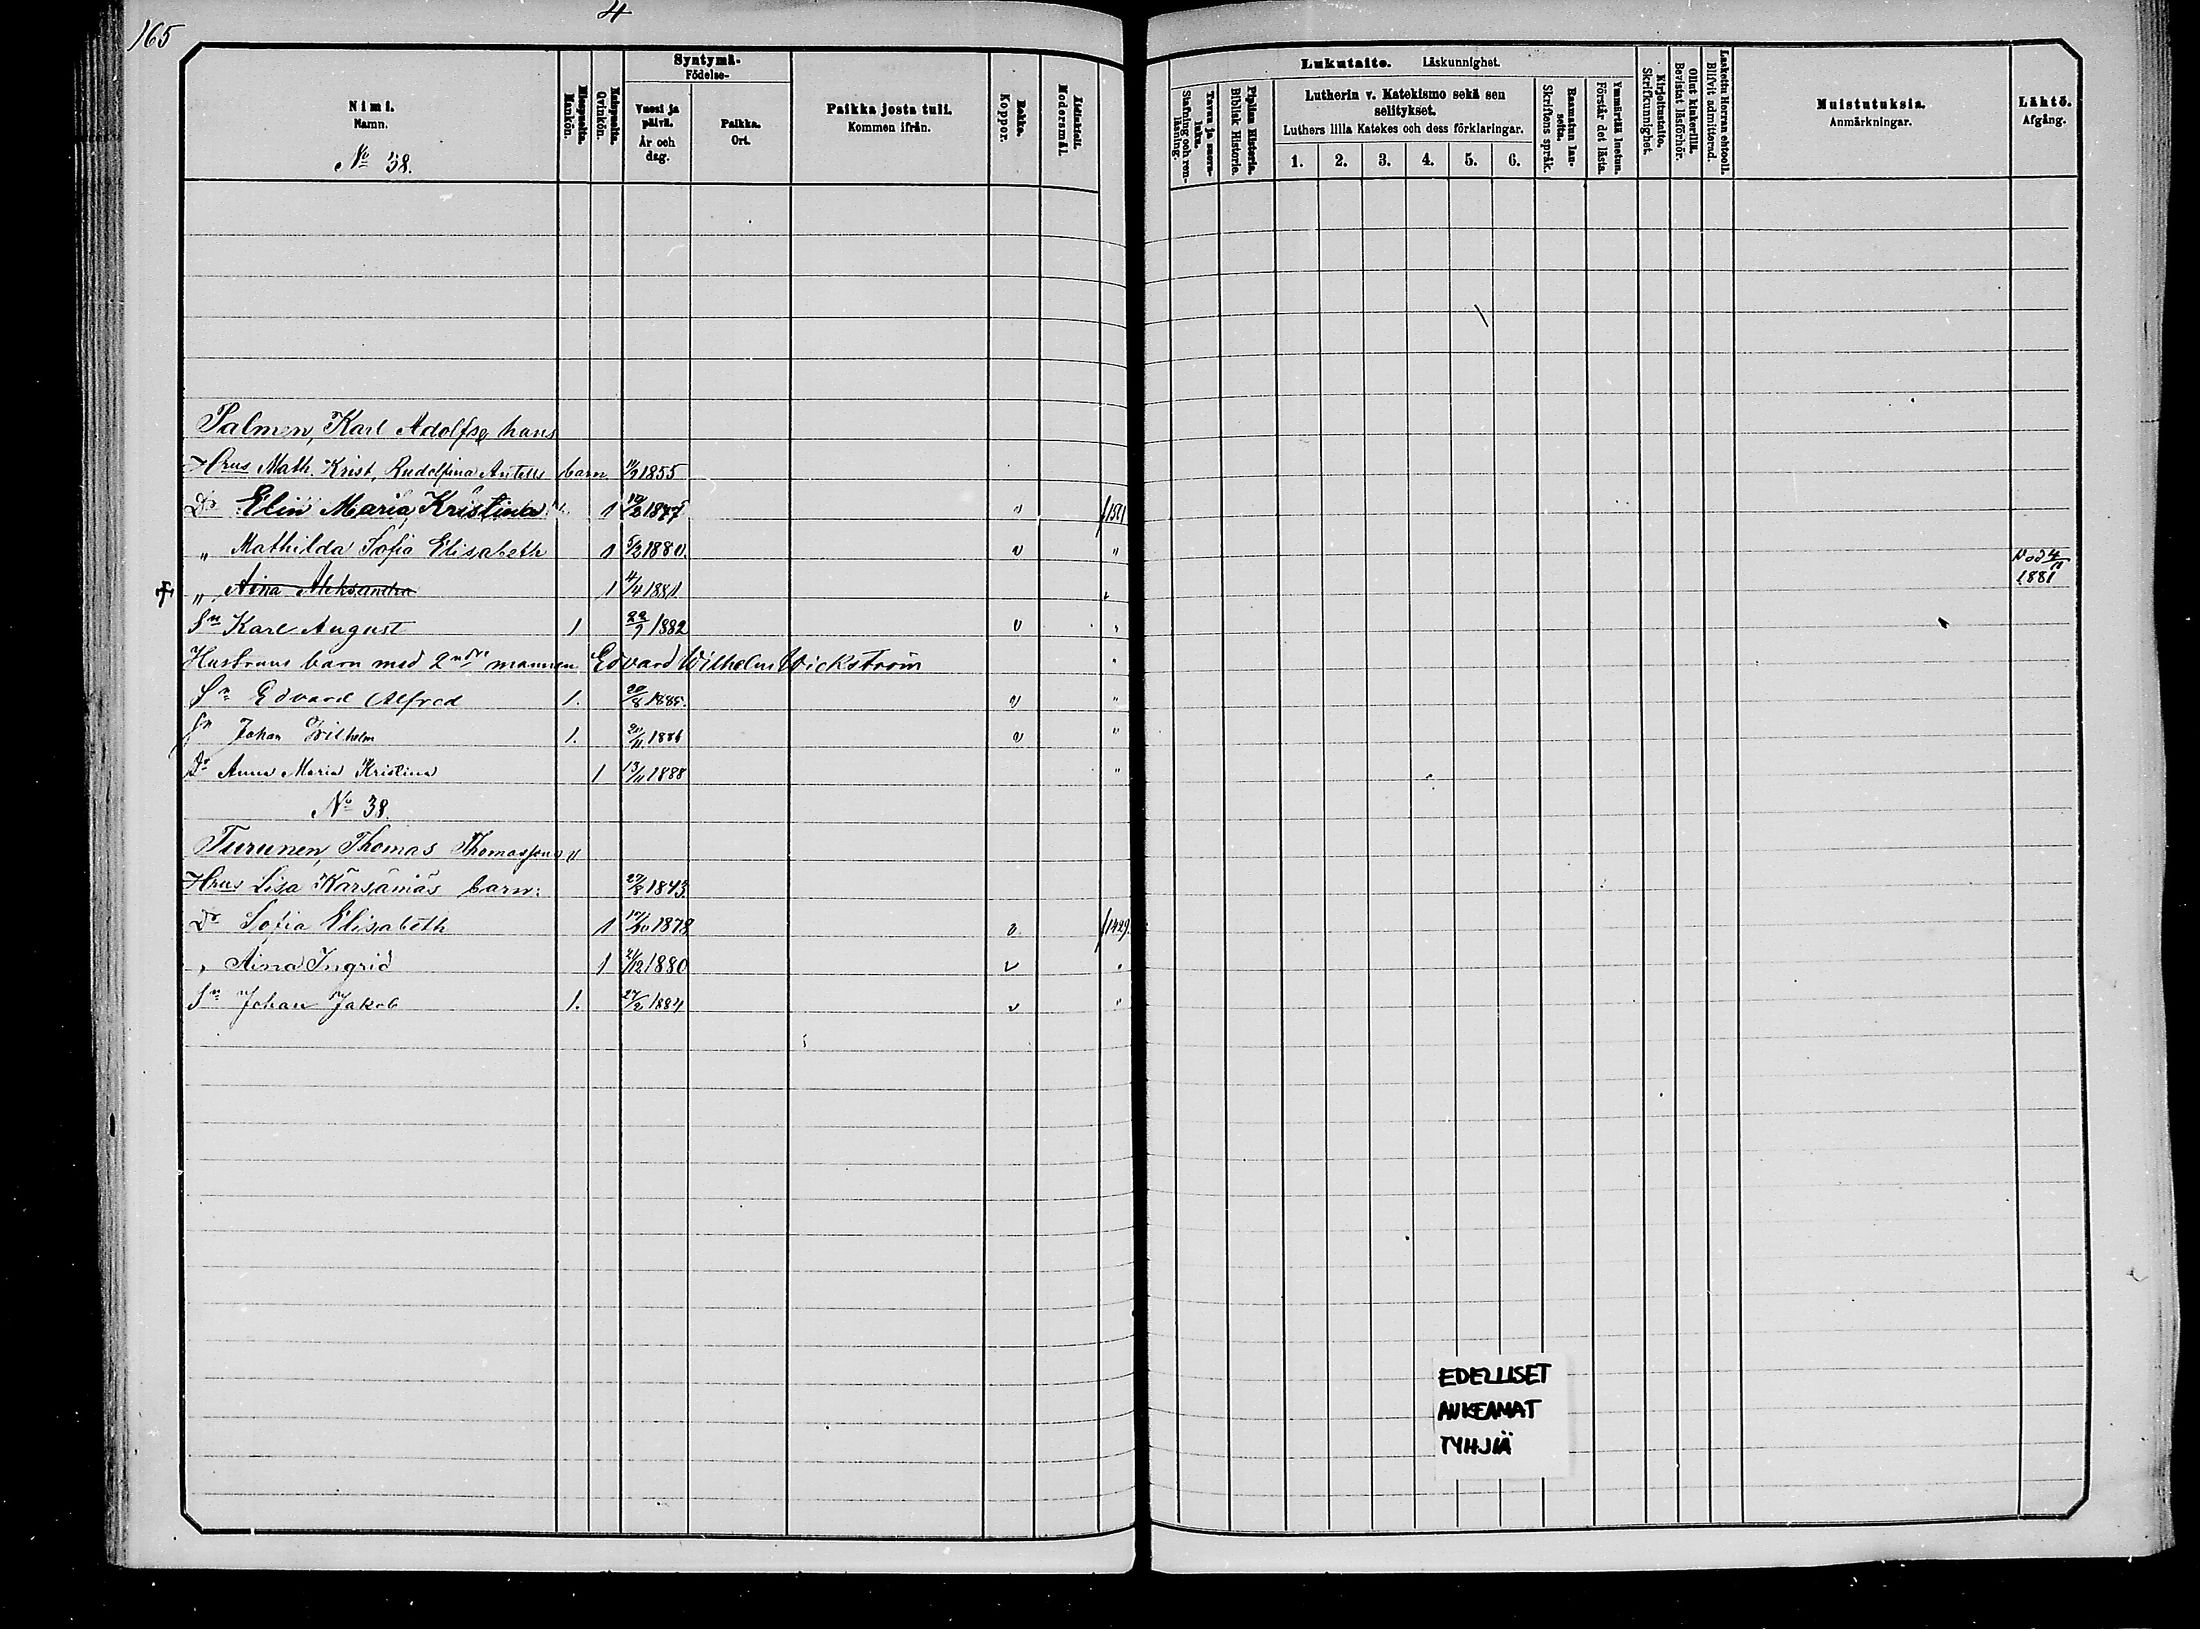 165
4
Nimi.
Namn.
No 38.
Miespuolia.
Mankön.
Vaispuolia.
Qvinkön.
Syntymä-
Födelse-
Vuosi ja päivä.
År och dag.
Paikka.
Ort.
Paikka josta tuli.
Kommen ifrån.
Rokko.
Koppor.
Äidinkieli.
Modersmål.
Lukutaito. Läskunnighet.
Tavuu ja suora-luku.
Stafning och ren-läsning.
Piplian Historia.
Biblisk Historie.
Lutherin v. Katekismo sekä sen selitykset.
Luthers lilla Katekes och dess förklaringar.
1. 2. 3. 4. 5. 6.
Raamatun lau-seita.
Skriftens språk.
Ymmärtää luetun.
Förstår det lästa.
Kirjoitustaito.
Skrifkunnighet.
Ollut kinkerillä.
Bevistat läsförhör.
Laskettu Herran ehtooll.
Blifvit admitterad.
Muistutuksia.
Anmärkningar.
Lähtö.
Afgång.
Palmen, Karl Adolfs o hans
Hrus Math. Krist, Rudolfina Antells barn 1855
Dr Elin Maria Kristina 1 1877 v
„ Mathilda Sofia Elisabeth 1 5/2 1880. v „
„ Aina Aleksandra 1 1881 död 4/11 1881
Sn Karl August 1 22/7 1882 v „
Hustruns barn med 2ndre mannen Edvard Wilhelm Wickström „
Sn Edvard Alfred 1. 20/8 1885. v „
Sn Johan Wilhelm 1. 1886 v „
Dr Anna Maria Kristina 1 13/11 1888 „
No 38.
Turunen, Thomas Thomasson o
Hrus Lisa Kärsämäs barn: 27/8 1843.
Dr Sofia Elisabeth 1 1878 v 1429.
„ Aina Ingrid 1 1880 v „
Sn Johan Jakob 1. 27/2 1884 v „
EDELLISET
AUKEAMAT
TYHJIÄ